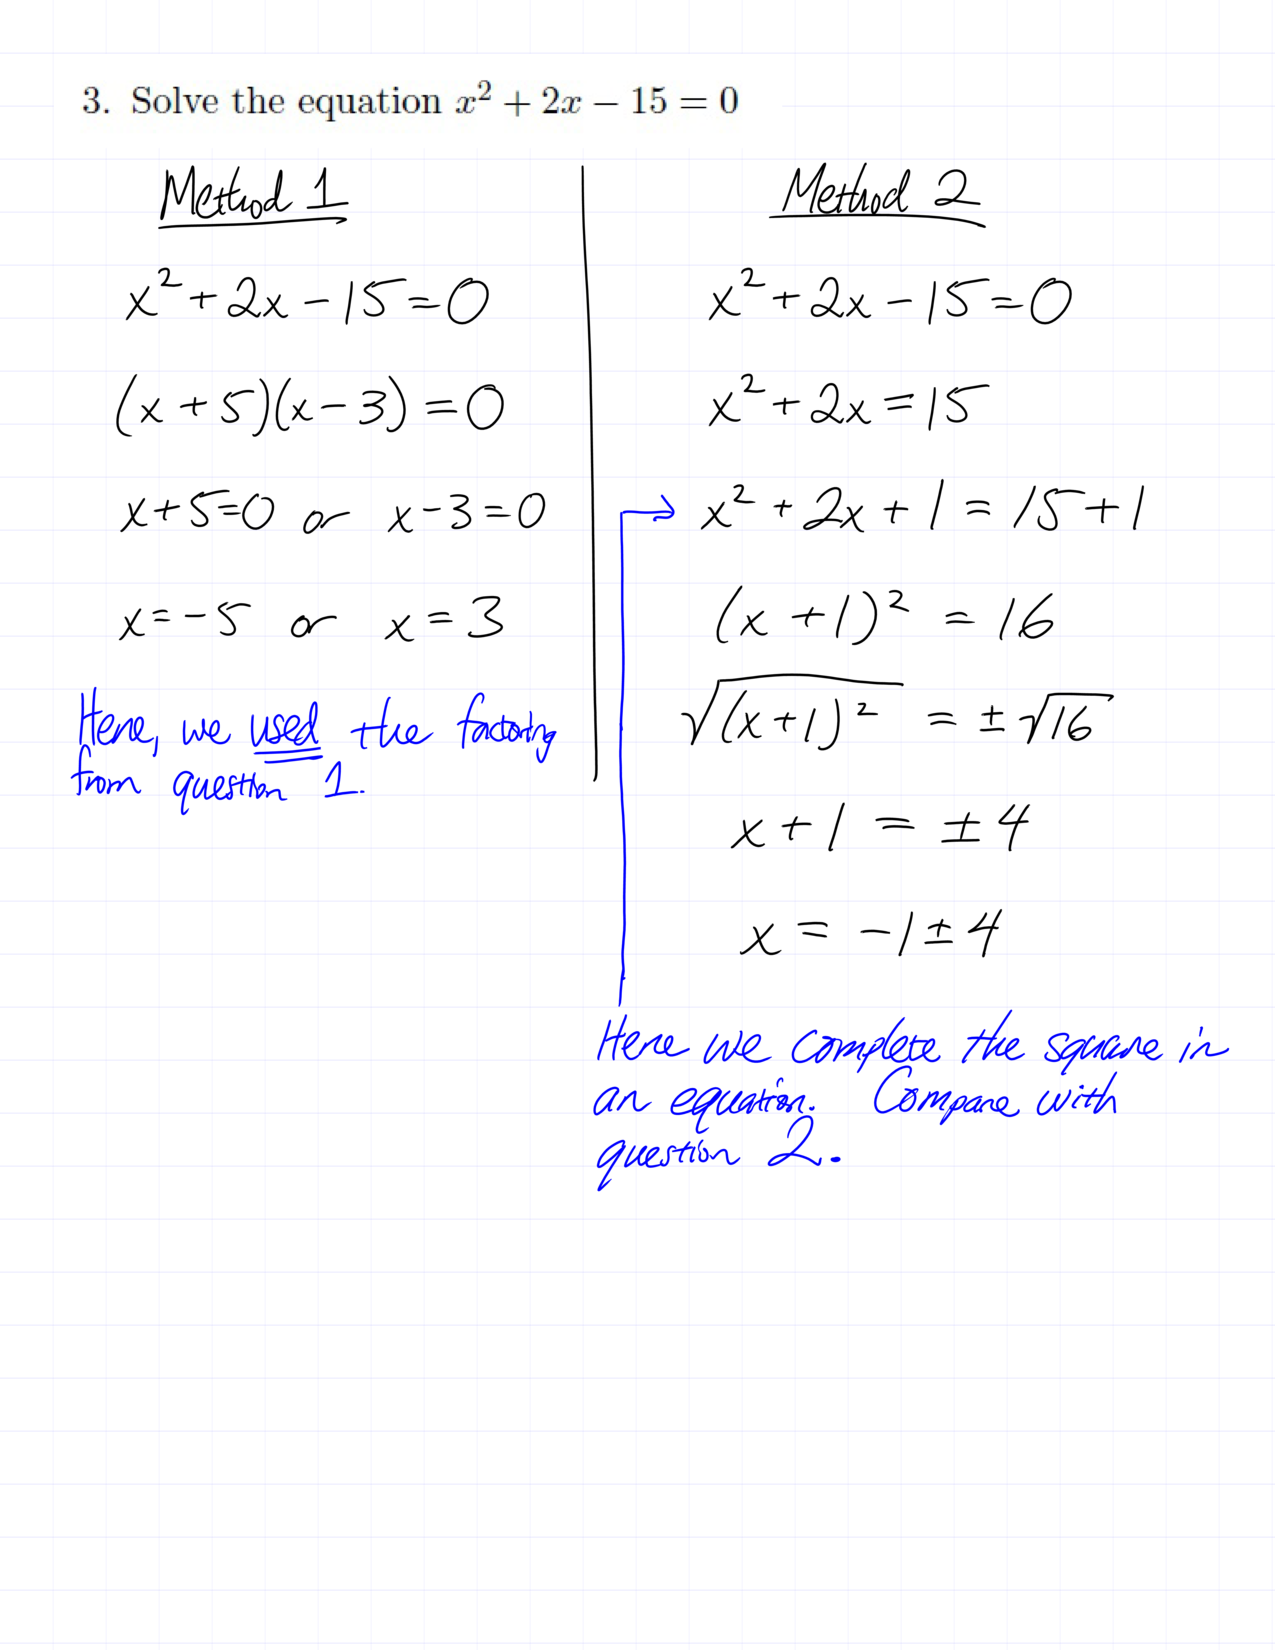 3. Solve the equation x² + 2x − 15 = 0
Method 1
x² + 2x − 15 = 0
(x + 5)(x − 3) = 0
x + 5 = 0 or x − 3 = 0
x = −5 or x = 3
Here, we used the factoring
from question 1.
Method 2
x² + 2x − 15 = 0
x² + 2x = 15
x² + 2x + 1 = 15 + 1
(x + 1)² = 16
√(x + 1)² = ± √16
x + 1 = ± 4
x = −1 ± 4
Here we complete the square in
an equation. Compare with
question 2.